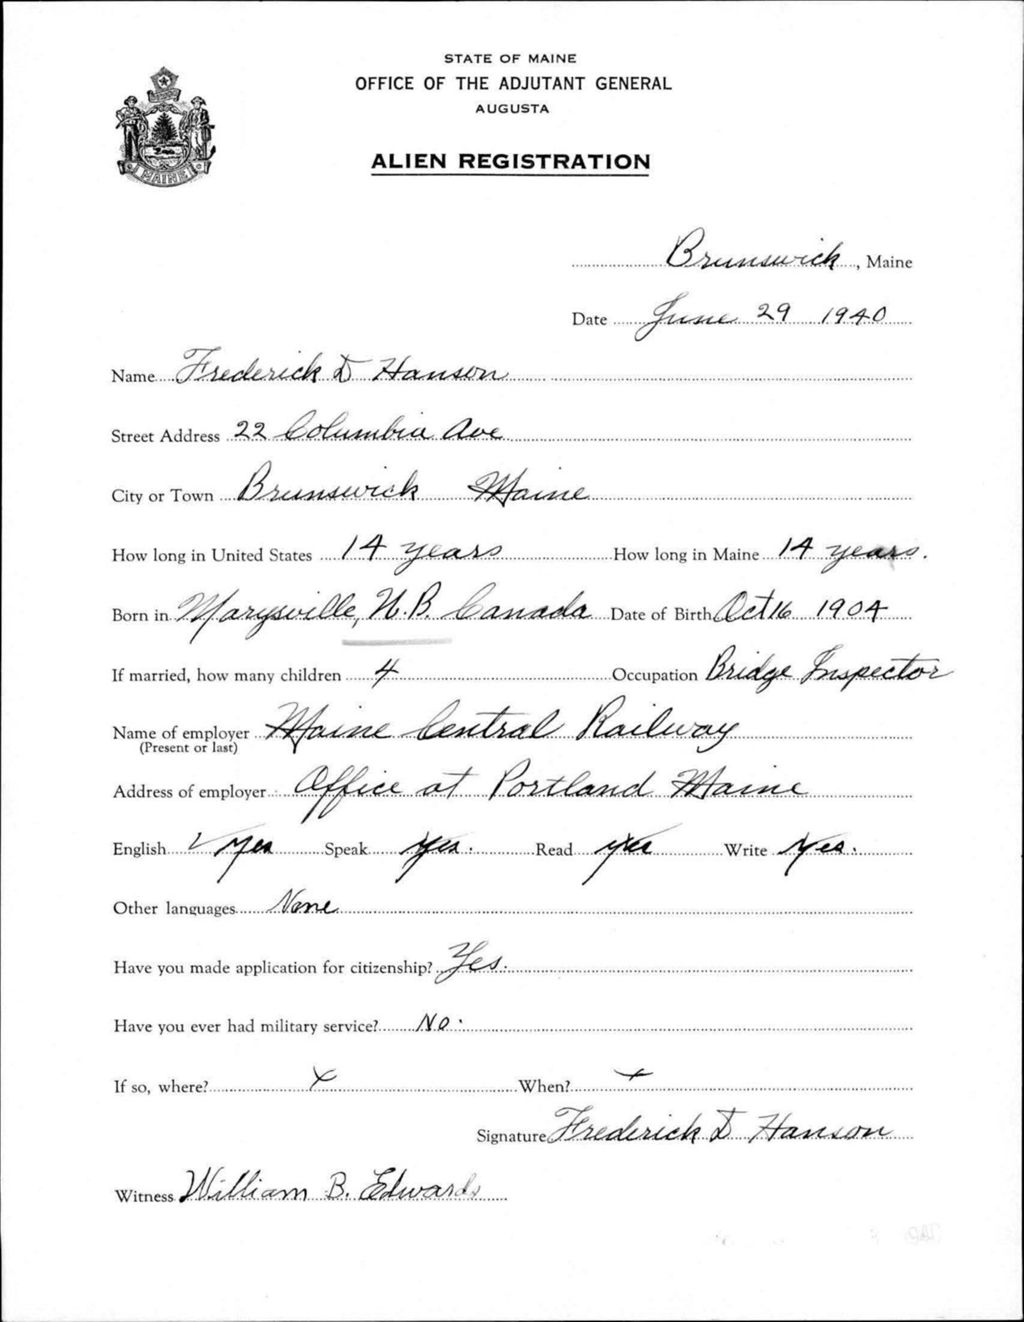 STATE OF MAINE
OFFICE OF THE ADJUTANT GENERAL
AUGUSTA
ALIEN REGISTRATION
MAINE
Brunswick, Maine
Date June 29 1940
Name Frederick D Hanson
Street Address 22 Columbia Ave
City or Town Brunswick Maine
How long in United States 14 years How long in Maine 14 years.
Born in Marysville, N.B. Canada Date of Birth Oct 16 1904
If married, how many children 4 Occupation Bridge Inspector
Name of employer Maine Central Railway
(Present or last)
Address of employer Office at Portland Maine
English ✓ Yes Speak Yes. Read Yes Write Yes.
Other languages None
Have you made application for citizenship? Yes.
Have you ever had military service? No.
If so, where? x When? x
Signature Frederick D Hanson
Witness William B. Edwards